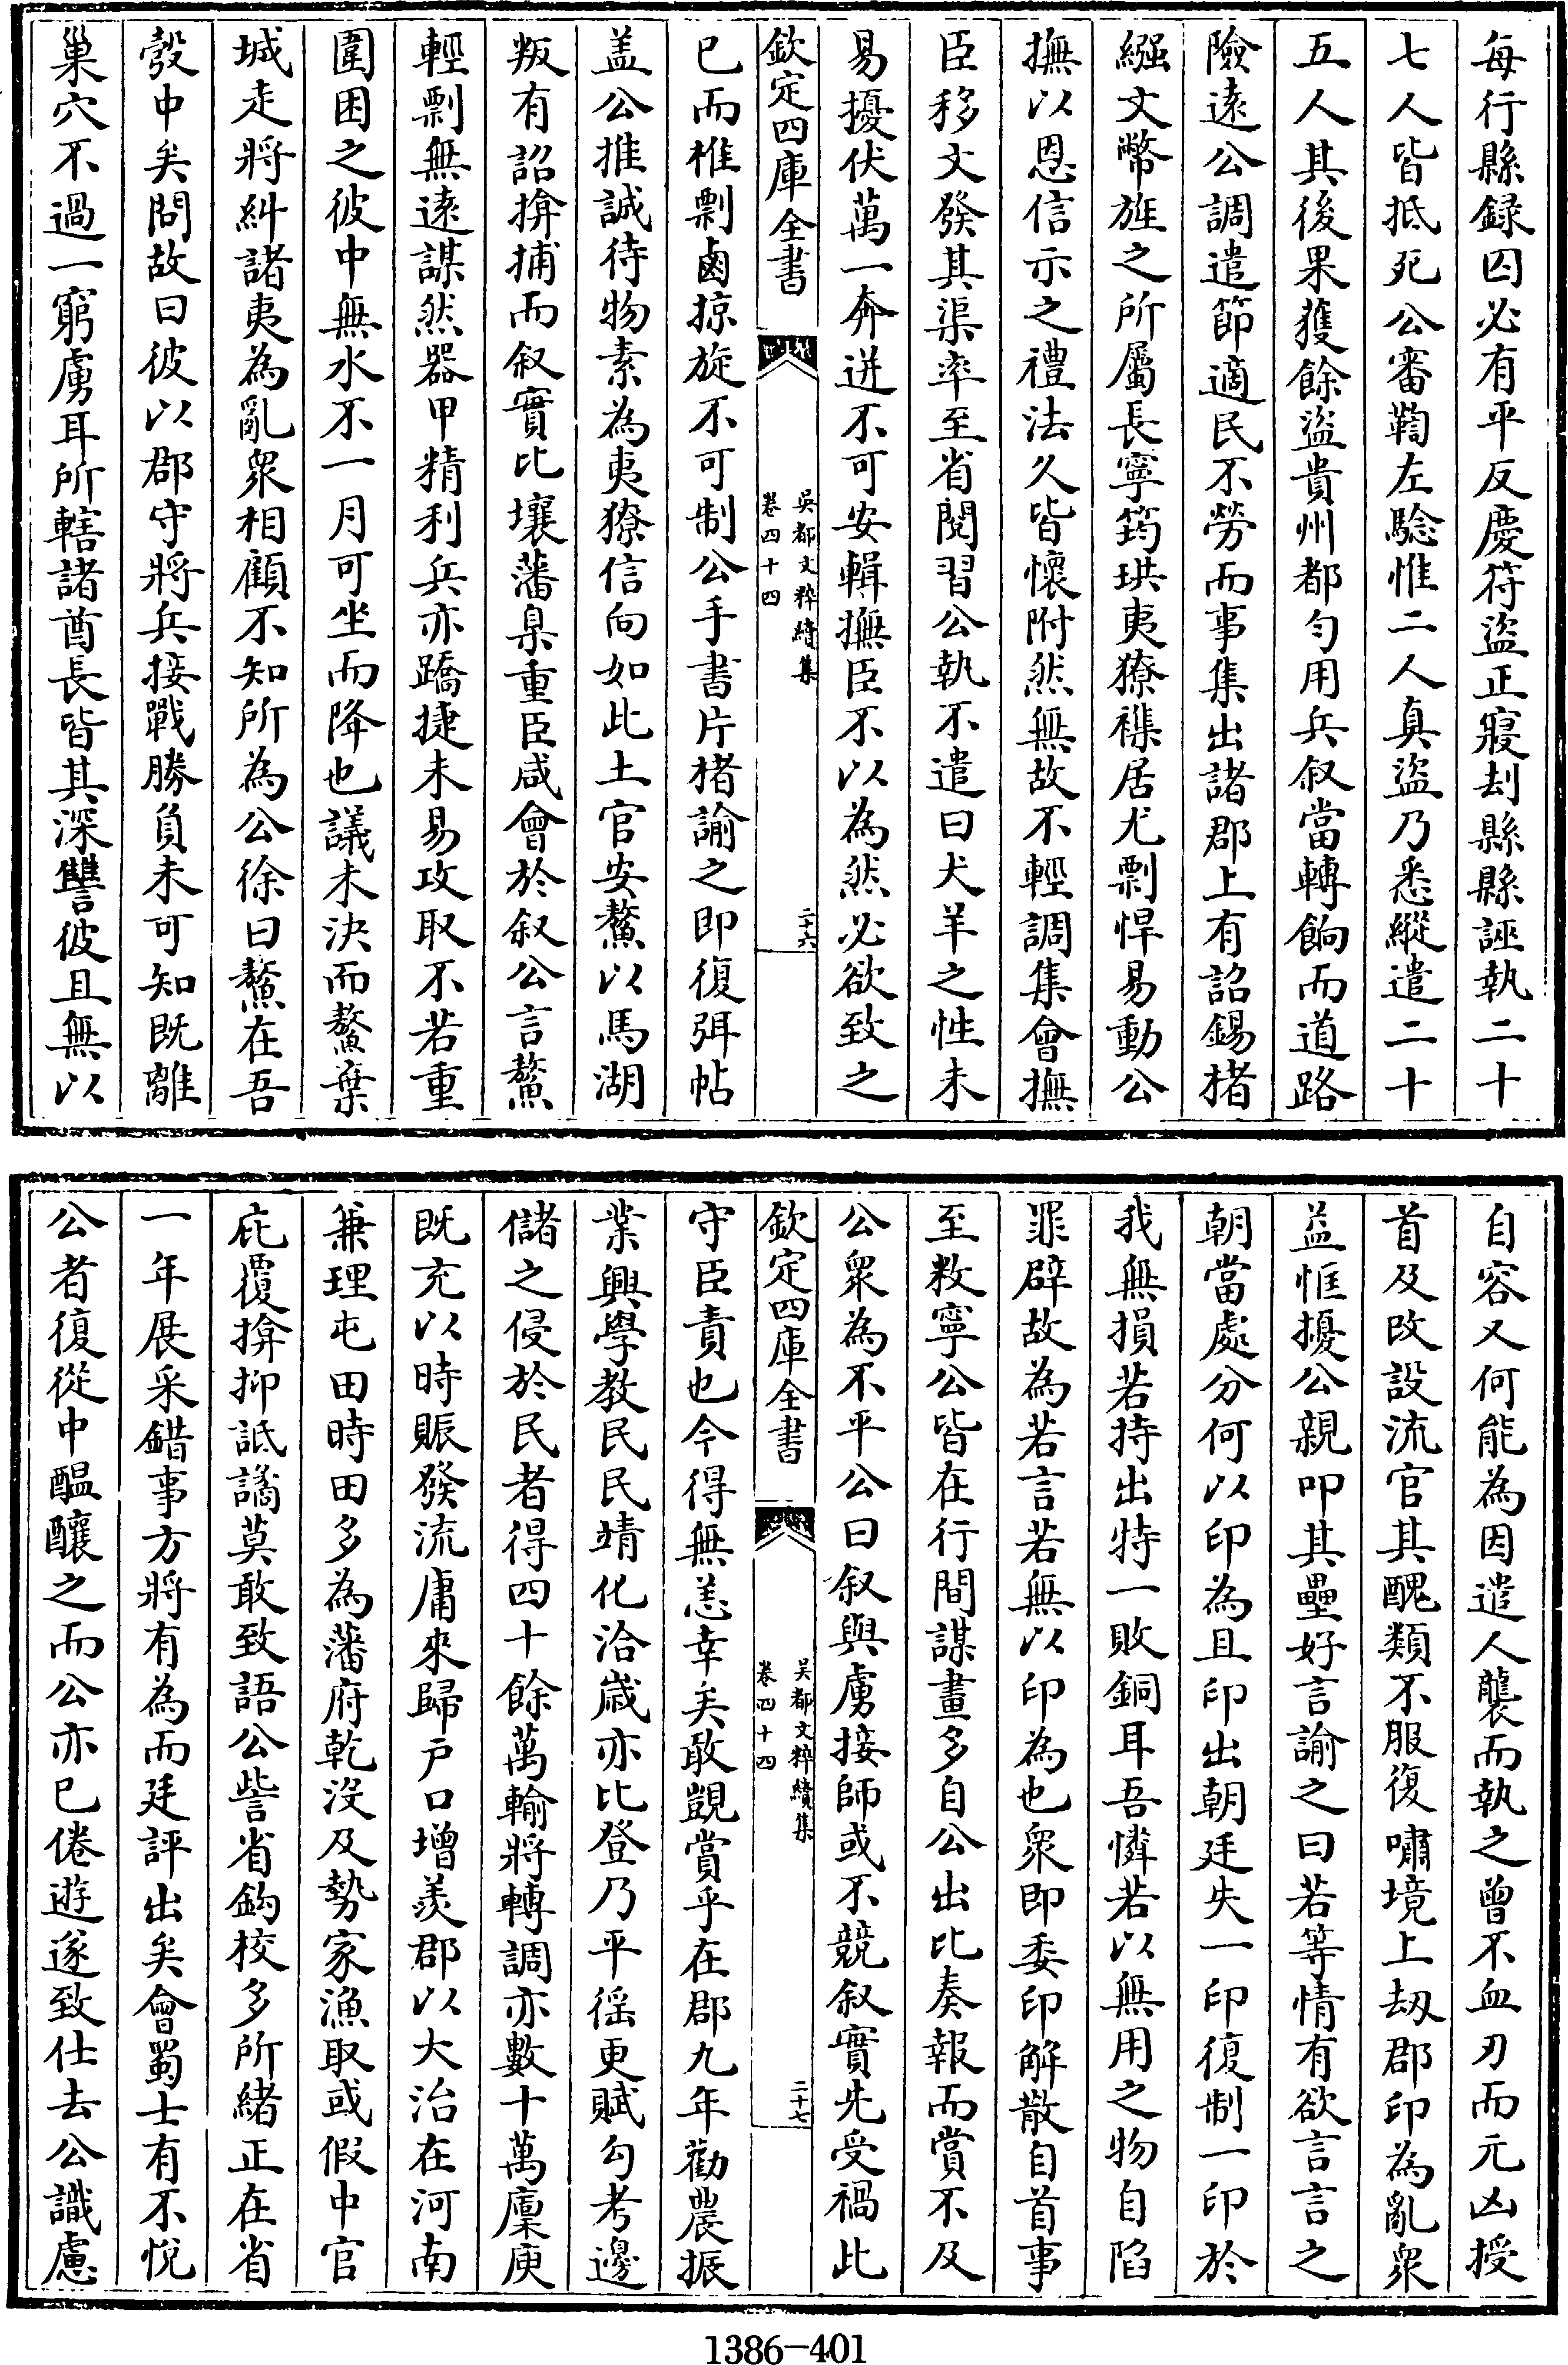 每行縣録囚必有平反慶符盜正寢刦縣縣誣執二十
七人皆抵死公審鞫左騐惟二人真盜乃悉縱遣二十
五人其後果獲餘盜貴州都勻用兵叙當轉餉而道路
險遠公調遣節適民不勞而事集出諸郡上有詔錫楮
繦文幣旌之所屬長寧筠珙夷獠襍居尤剽悍易動公
撫以恩信示之禮法久皆懷附然無故不輕調集會撫
臣移文發其渠率至省閱習公執不遣曰犬羊之性未
易擾伏萬一奔迸不可安輯撫臣不以為然必欲致之
欽定四庫全書
吳都文粹續集
卷四十四
二十六
已而椎剽鹵掠旋不可制公手書片楮諭之即復弭帖
盖公推誠待物素為夷獠信向如此土官安鰲以馬湖
叛有詔揜捕而叙實比壤藩臬重臣咸會於叙公言鰲
輕剽無遠謀然器甲精利兵亦蹻捷未易攻取不若重
圍困之彼中無水不一月可坐而降也議未決而鰲棄
城走將糾諸夷為亂衆相顧不知所為公徐曰鰲在吾
彀中矣問故曰彼以郡守將兵接戰勝負未可知既離
巢穴不過一窮虜耳所轄諸酋長皆其深讐彼且無以
自容又何能為因遣人襲而執之曾不血刃而元凶授
首及改設流官其醜類不服復嘯境上刼郡印為亂衆
益惟擾公親叩其壘好言諭之曰若等情有欲言言之
朝當處分何以印為且印出朝廷失一印復制一印於
我無損若持出特一敗銅耳吾憐若以無用之物自陷
罪辟故為若言若無以印為也衆即委印解散自首事
至敉寧公皆在行間謀畫多自公出比奏報而賞不及
公衆為不平公曰叙與虜接師或不競叙實先受禍此
欽定四庫全書
吳都文粹續集
卷四十四
二十七
守臣責也今得無恙幸矣敢覬賞乎在郡九年勸農振
業興學教民民靖化洽歲亦比登乃平徭更賦勾考邊
儲之侵於民者得四十餘萬輸將轉調亦數十萬廩庾
既充以時賑發流庸來歸户口增羨郡以大治在河南
兼理屯田時田多為藩府乾沒及勢家漁取或假中官
庇覆揜抑詆譎莫敢致語公訾省鈎校多所緒正在省
一年展采錯事方將有為而廷評出矣會蜀士有不悅
公者復從中醖釀之而公亦已倦遊遂致仕去公識慮
1386-401